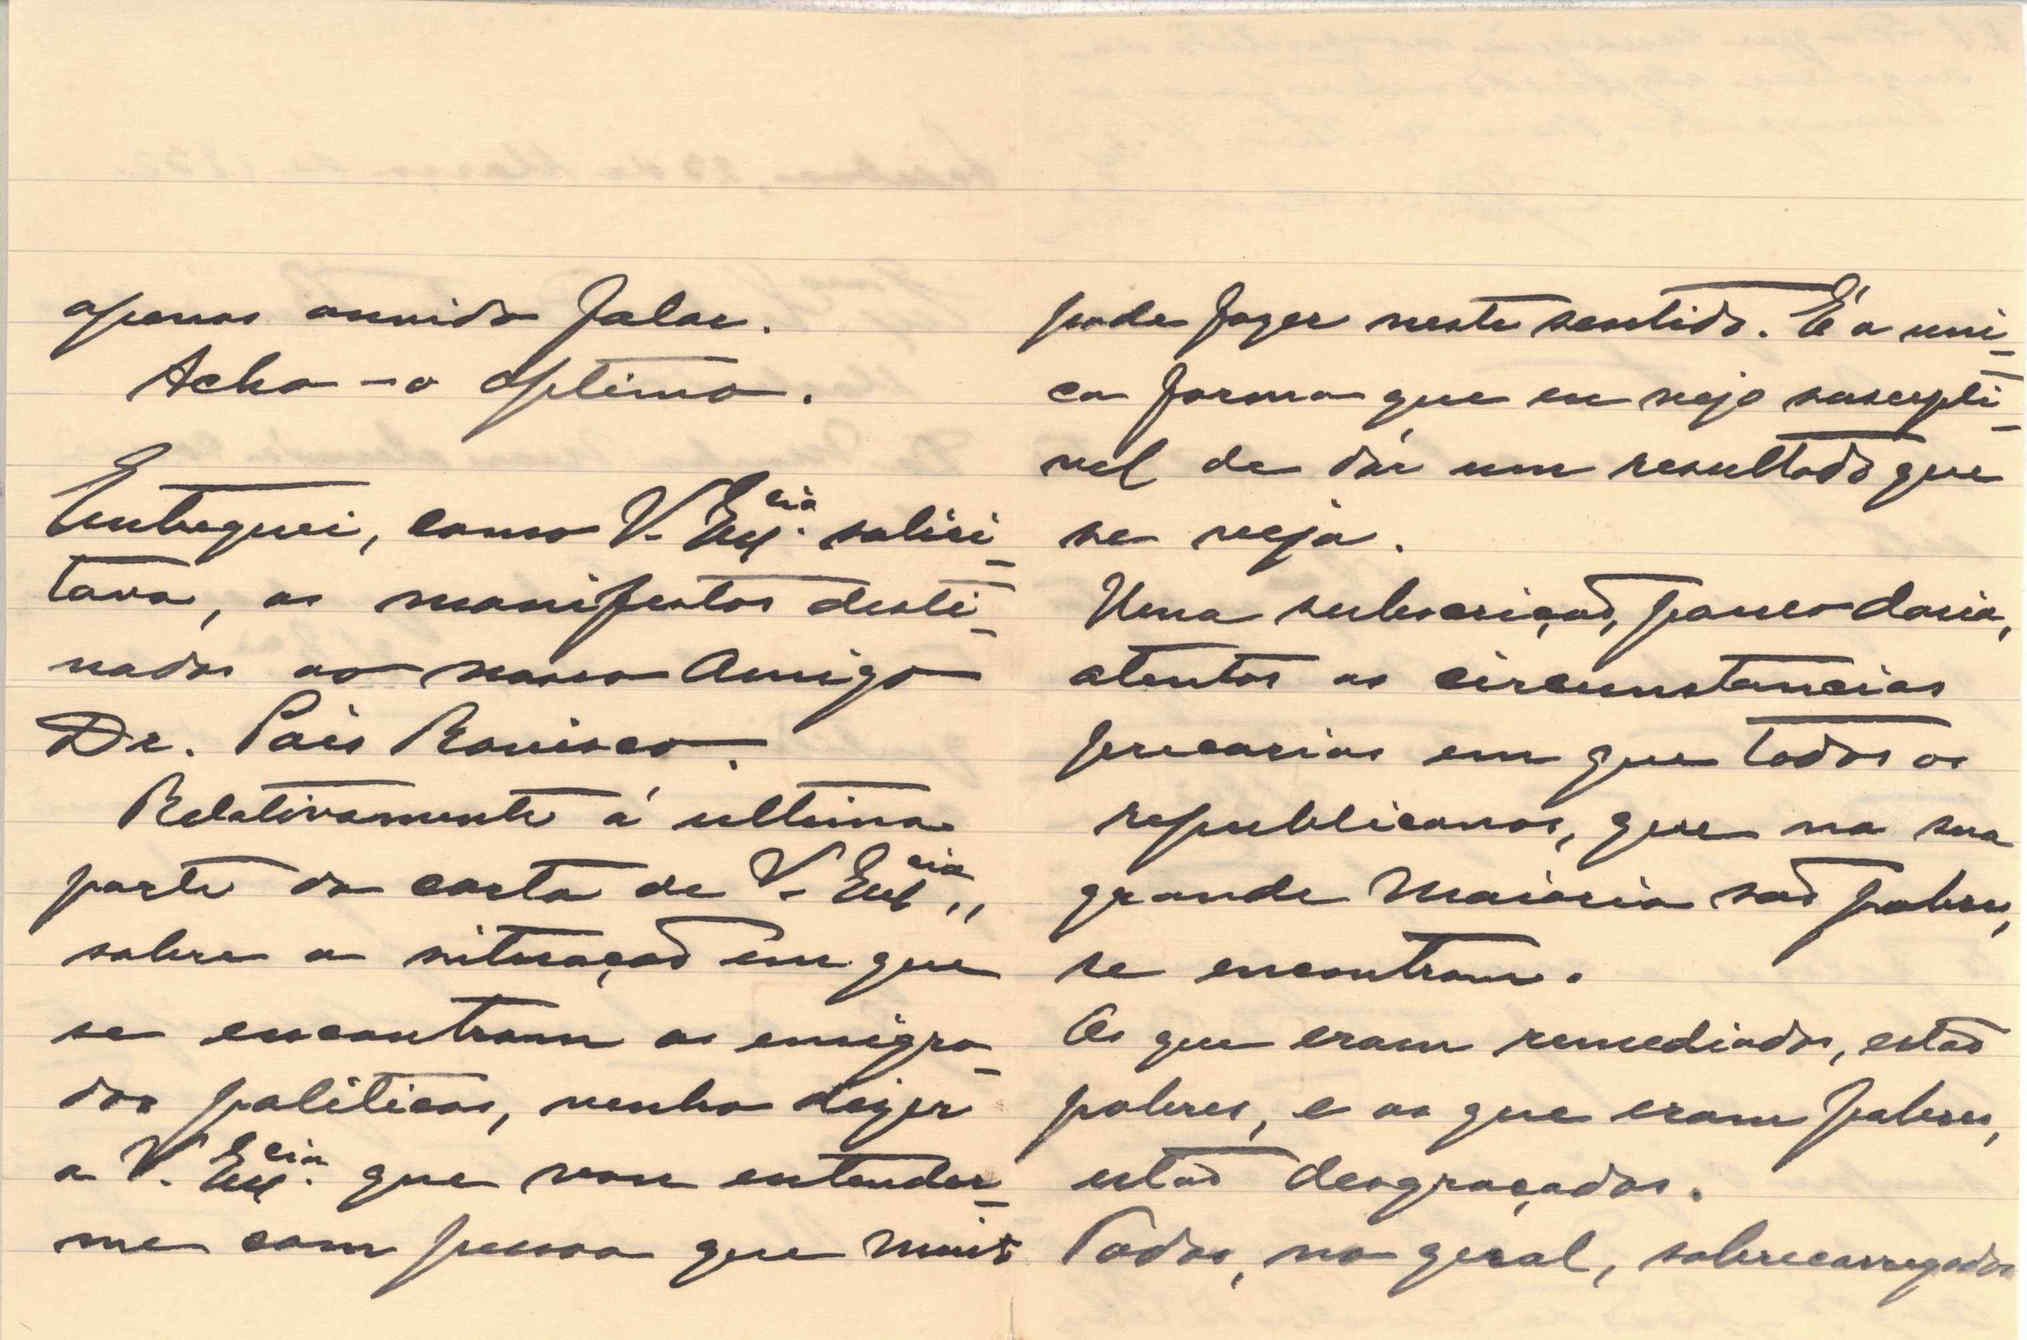 apenas ouvido falar.
Acho-o optimo.
Entreguei, como V. Ex.cia solici-
tava, os manifestos desti-
nados ao nosso Amigo
Dr. Pais Rovisco.
Relativamente á ultima
parte da carta de V. Ex.cia,
sobre a situação em que
se encontram os emigra-
dos politicos, venho dizer
a V. Ex.cia que vou entender-
me com pessoa que muito
pode fazer neste sentido. É a uni-
ca forma que eu vejo suscepti-
vel de dár um resultado que
se veja.
Uma subscrição, pouco daria,
atentas as circunstancias
precarias em que todos os
republicanos, que na sua
grande Maioria são pobres,
se encontram.
Os que eram remediados, estão
pobres, e os que eram pobres,
estão desgraçados.
Todos, no geral, sobrecarregados